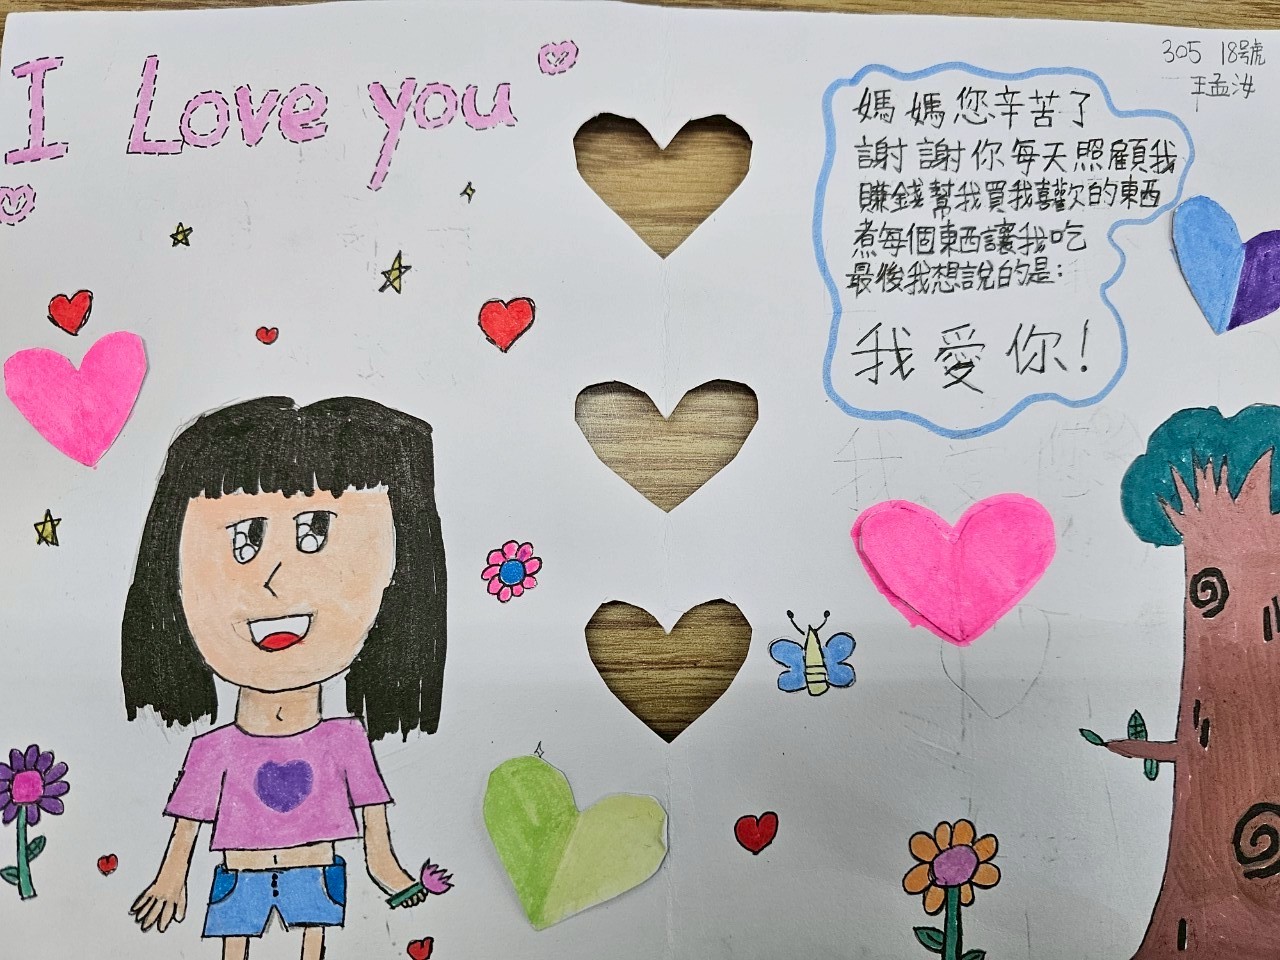 I Love you
305 18號
王孟汝
媽媽您辛苦了
謝謝你每天照顧我
賺錢幫我買我喜歡的東西
煮每個東西讓我吃
最後我想說的是：
我愛你！